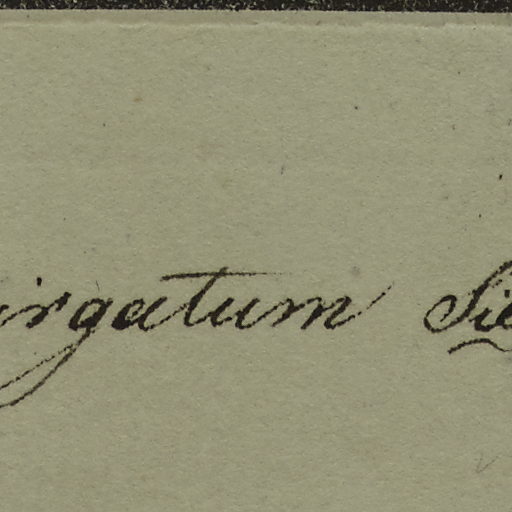 irgatum Sie